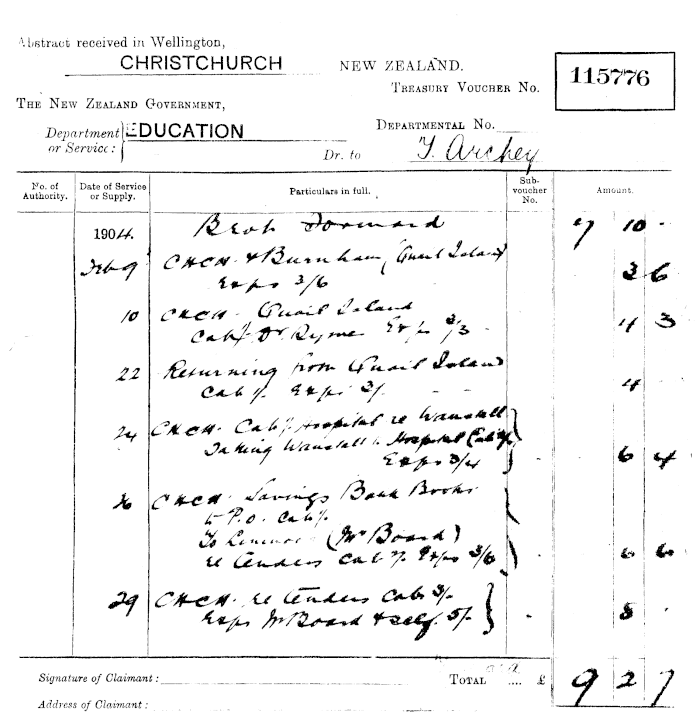 Abstract received in Wellington,
CHRISTCHURCH NEW ZEALAND.
TREASURY VOUCHER No. 115776
THE NEW ZEALAND GOVERNMENT,
Department or Service: EDUCATION
DEPARTMENTAL No.
Dr. to T. Archey
No. of Authority. Date of Service or Supply. Particulars in full. Sub-voucher No. Amount.
1904. Brot Forward 7 10 -
Feb 9 CHCH & Burnham, Quail Island
Exps 3/6 3 6
10 CHCH. Quail Island
Cab Dr Exps 4 3
22 Returning from Quail Island
Cab Exps 4
24 CHCH. Cab Hospital re Wanstall
Taking Wanstall to Hospital Cab
Exps 3/4 6 4
26 CHCH. Savings Bank Books
to P.O. Cab
To (Mr Board)
re Tenders Cab Exps 3/6 6 6
29 CHCH. re Tenders Cabs 3/-
Exps Mr Board & self. 5/- 8 -
Signature of Claimant: TOTAL .... £ 9 2 7
Address of Claimant: